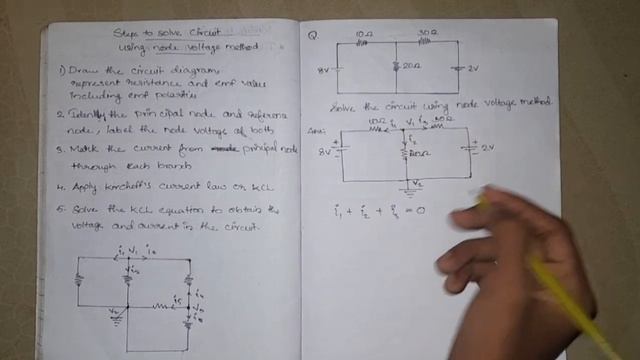 Steps to solve circuit
using node voltage method
1) Draw the circuit diagram,
represent resistance and emf value
including emf polarities
2. Identify the principal node and reference
node, label the node voltage of both
3. Mark the current from principal node
through each branch
4. Apply kirchoff's current law or KCL
5. Solve the KCL equation to obtain the
voltage and current in the circuit.
i1 V1 i2
V2
Q.
10Ω 30Ω
8V 20Ω 2V
Solve the circuit using node voltage method.
Ans:
10Ω i1 V1 i3 30Ω
i2
8V 20Ω 2V
V2
i1 + i2 + i3 = 0